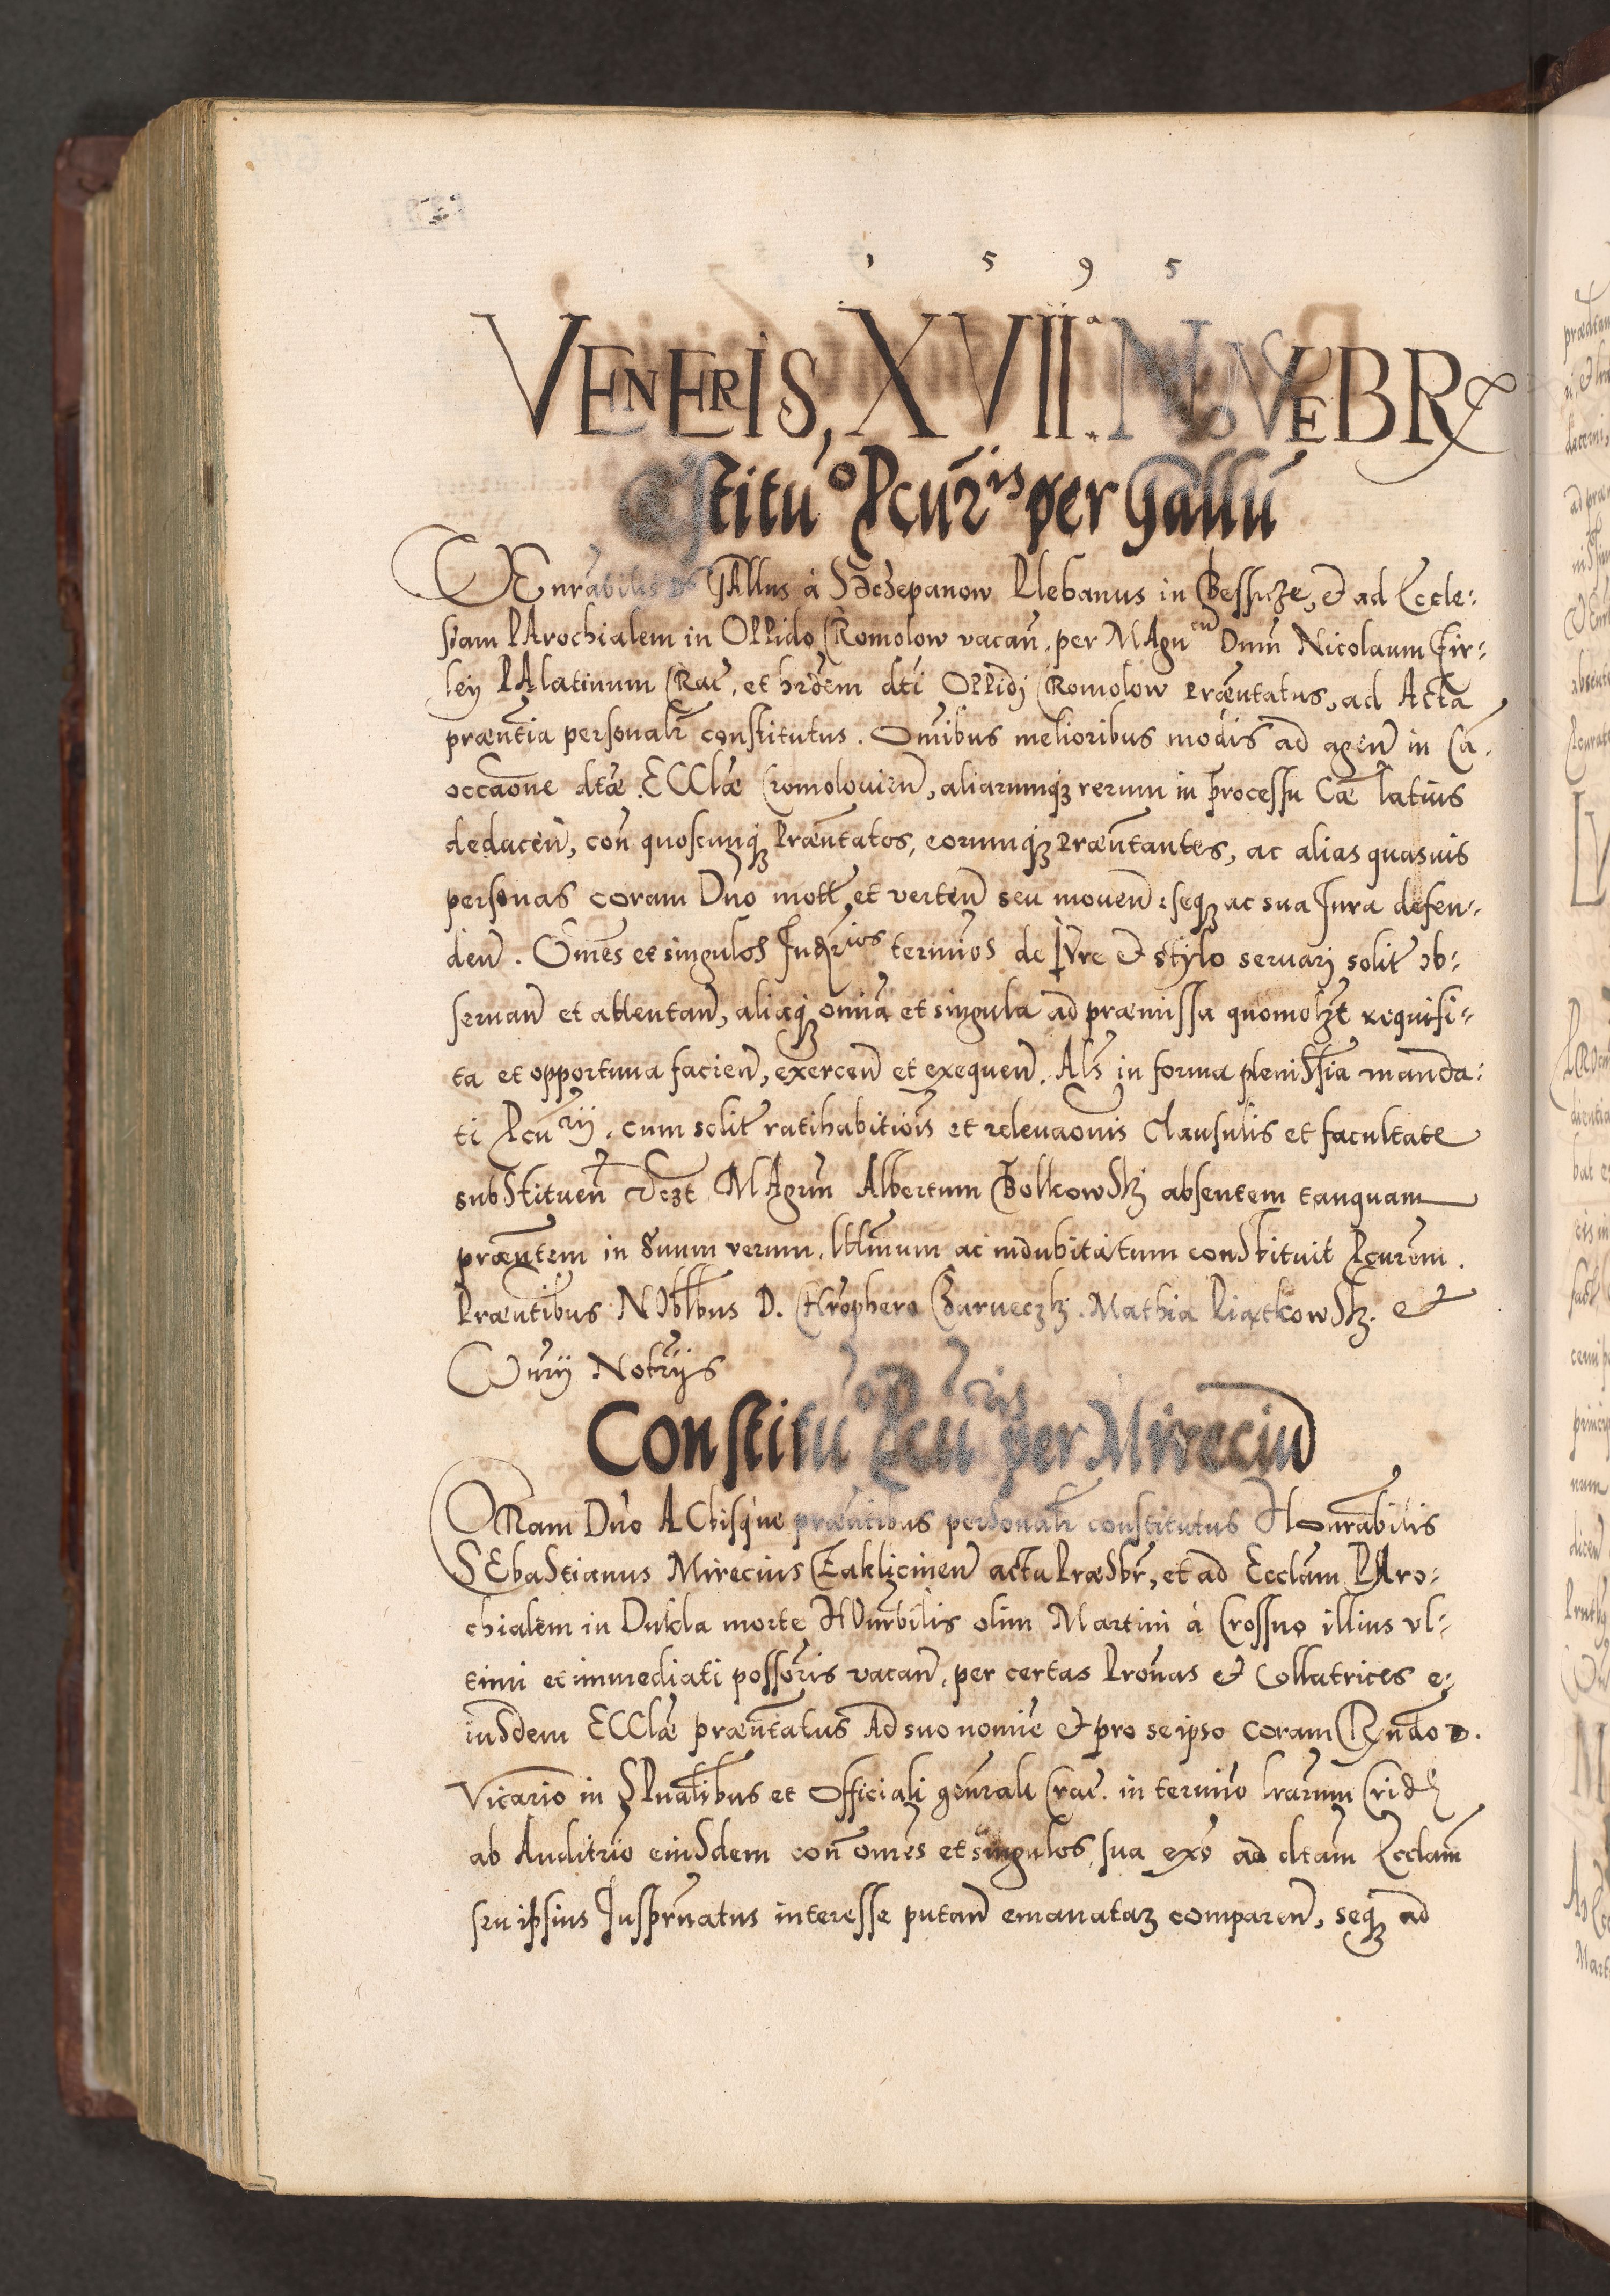 1 5 9 5
VENERIS, XVII.ª NOVEBR
Cstitu͠o Pcur̃is per Gallũ
VEnrabilis Ds GAllus à Sczepanow Plebanus in Bessuze, et ad Eccle:
siam PArochialem in OPPido CRomolow vacan̄. per MAgncũ Dnum̄ Nicolaum Fir:
ley PAlatinum CRac̄. et hrdem̄ dti OPPidj CRomolow Præn̄tatus, ad Acta
præn̄tia personalr̄ constitutus. Om̄ibus melioribus modis ad agen̄ in Cā.
occaōne dtæ ECClæ Cromolouien̄, aliarumqȝ rerum in processu Cæ latius
deducen̄, con̄ quoscunqȝ Præn̄tatos, eorumqȝ præn̄tantes, ac alias quasuis
personas coram Dn̄o mott̄ et verten̄ seu mouen̄: seqȝ ac sua Jura defen:
den̄. Om̄es et singulos Judrios̄ termin̄os de IVre et stylo seruarj solit̄ ob:
seruan̄ et attentan̄, aliaqȝ omn̄ia et singula ad præmissa quomolȝt requisi:
ta et opportuna facien̄, exercen̄ et exequen̄. Als̄ in forma plenissīa manda:
ti Pcurij. cum solit̄ ratihabitiōis et releuaōnis Clausulis et facultate
substituen̄ vidȝt MAgrum̄ Albertum Bolkowskj absentem tanquam
præn̄tem in suum verum. lttīmum ac indubitatum constituit Pcurem̄.
Præn̄tibus NOblbus D. CHrōphero Czarneczkj. Mathia Piątkowskj. et
Curij Notrijs̄
Constitu͠o Pcuris̄ per Mirreciũ
CORam Dn̄o ACtisque præn̄tibus personalr̄ constitutus Honrabilis
SEbastianus Mirecius Zaklicinen̄ actu Præsbr̄, et ad Ecclam̄ PAro:
chialem in Dukla morte HOnrbilis olim Martini à Crossno illius vl:
timi et immediati possoris̄ vacan̄. per certas Pron̄as et Collatrices e:
iusdem ECClæ præn̄tatus Ad suo nomin̄e et pro se ipso coram Rn̄do D.
Vicario in SPualibus̄ et Officiali gen̄rali Crac̄. in termin̄o lrarum̄ Crid
ab Auditrio eiusdem con̄ om̄es et singulos, sua exō ad dtam̄ Ecclam̄
seu ipsius Juspr̄natus interesse putan̄ emanataȝ comparen̄, seqȝ ad